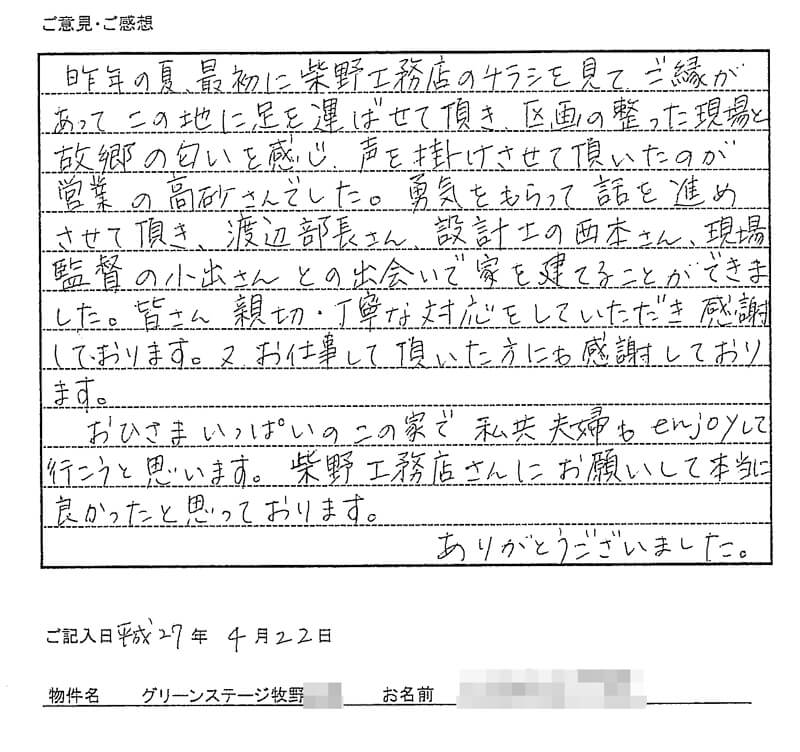 ご意見・ご感想
昨年の夏、最初に柴野工務店のチラシを見て、ご縁が
あってこの地に足を運ばせて頂き、区画の整った現場と
故郷の匂いを感じ、声を掛けさせて頂いたのが
営業の高砂さんでした。勇気をもらって話を進め
させて頂き、渡辺部長さん、設計士の西本さん、現場
監督の小出さんとの出会いで家を建てることができま
した。皆さん親切・丁寧な対応をしていただき感謝
しております。又、お仕事して頂いた方にも感謝しており
ます。
おひさまいっぱいのこの家で私共夫婦もenjoyして
行こうと思います。柴野工務店さんにお願いして本当に
良かったと思っております。
ありがとうございました。
ご記入日平成27年4月22日
物件名 グリーンステージ牧野 お名前